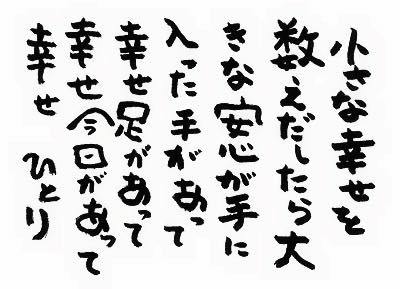 小さな幸せを
数えだしたら大
きな安心が手に
入った手があって
幸せ足があって
幸せ今日があって
幸せ ひとり